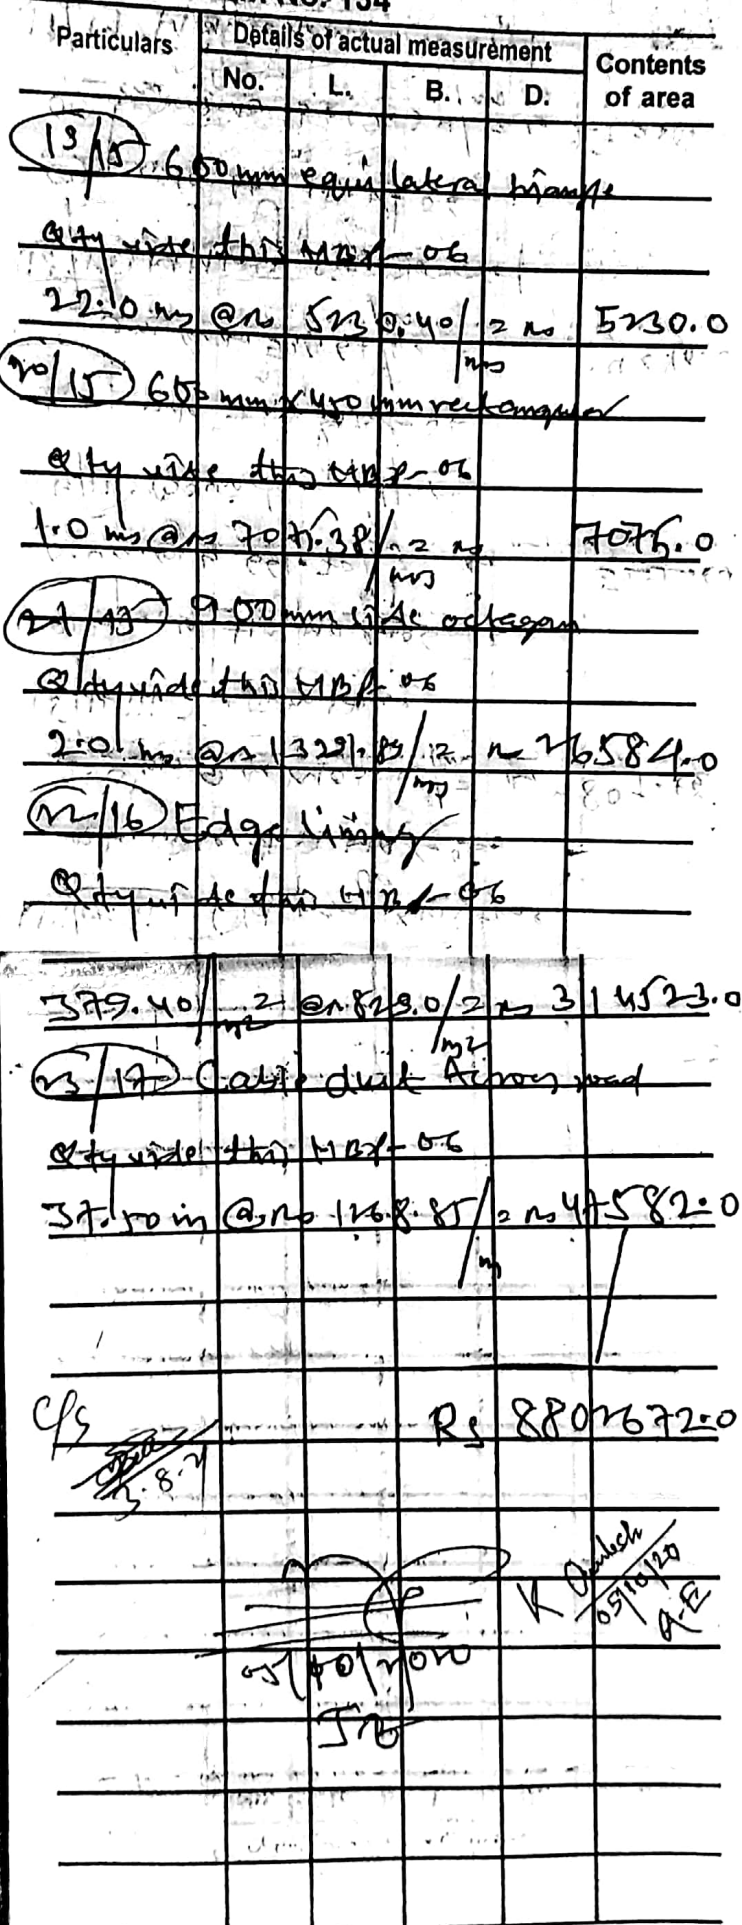 Particulars Details of actual measurement Contents of area
No. L. B. D.
19/15 600 mm equilateral triangle
Qty vide this MBP-06
@ Rs 5230.40/nos = Rs 5230.0
20/15 600 mm x 450 mm rectangular
Qty vide this MBP-06
1.0 nos @ Rs 7075.38/nos = Rs 7075.0
21/15 900 mm side octagon
Qty vide this MBP-06
2.0 nos @ Rs 13291.89/nos = Rs 26584.0
22/16 Edge lining
Qty vide this MBP-06
379.40 m2 @ Rs 829.0/m2 = Rs 314523.0
23/17 Cable duct Across road
Qty vide this MBP-06
37.50 m @ Rs 1268.85/m = Rs 47582.0
Rs 8802672.0
C/s
3.8.21
K
05/10/20
A.E
05/10/2020
JE